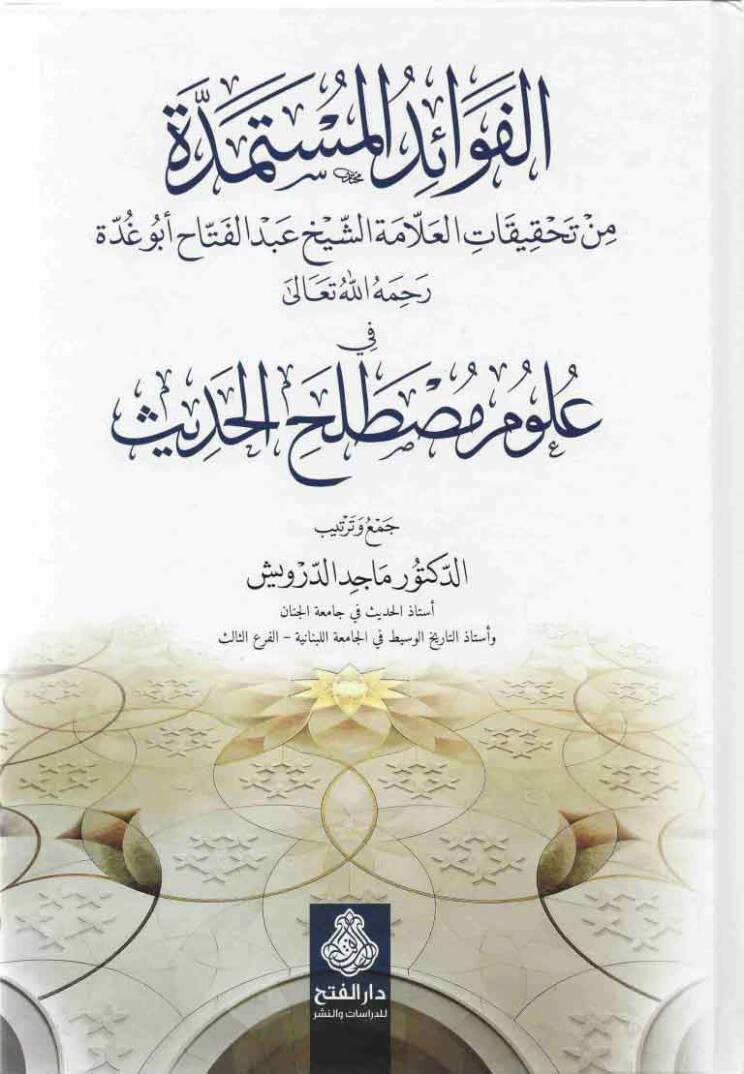 الفَوَائِدُ المُسْتَمَدَّة
مِنْ تَحْقِيقَاتِ العَلّامَة الشّيْخ عَبْد الفَتّاح أبُو غُدّة
رَحِمَهُ اللهُ تَعَالىٰ
فِي
عُلُومِ مُصْطَلَحِ الحَدِيث
جَمْعُ وَتَرْتِيب
الدّكتُور مَاجِد الدّرْويش
أستاذ الحديث في جامعة الجنان
وأستاذ التاريخ الوسيط في الجامعة اللبنانية - الفرع الثالث
دار الفتح
للدراسات والنشر